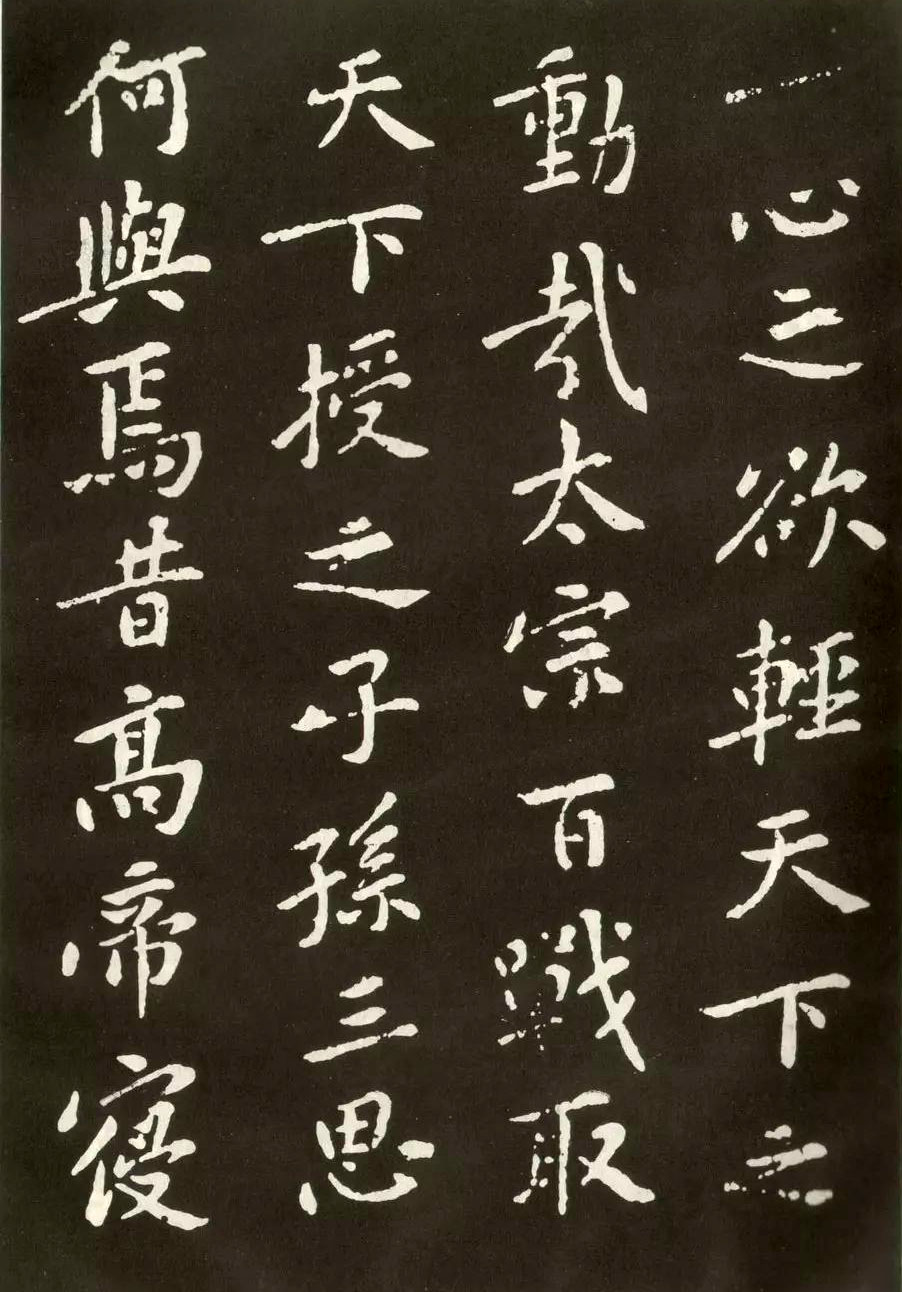 一心之欲輕天下之
動哉太宗百戰取
天下授之子孫三思
何與焉昔高帝寢